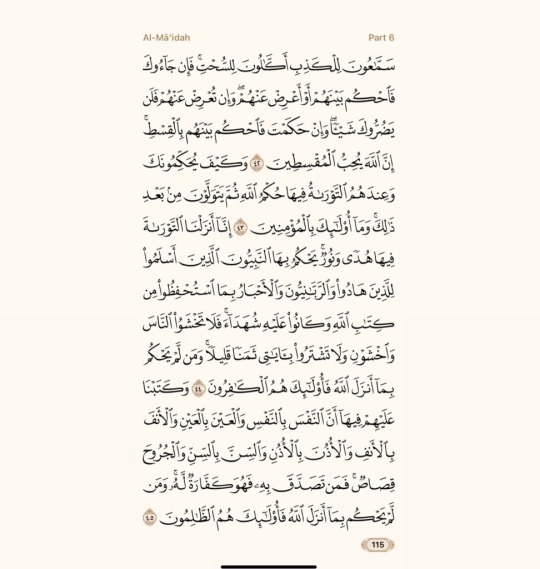 Al-Mā'idah Part 6
سَمَّٰعُونَ لِلْكَذِبِ أَكَّٰلُونَ لِلسُّحْتِ ۚ فَإِن جَآءُوكَ
فَٱحْكُم بَيْنَهُمْ أَوْ أَعْرِضْ عَنْهُمْ ۖ وَإِن تُعْرِضْ عَنْهُمْ فَلَن
يَضُرُّوكَ شَيْـًٔا ۖ وَإِنْ حَكَمْتَ فَٱحْكُم بَيْنَهُم بِٱلْقِسْطِ ۚ
إِنَّ ٱللَّهَ يُحِبُّ ٱلْمُقْسِطِينَ ٤٢ وَكَيْفَ يُحَكِّمُونَكَ
وَعِندَهُمُ ٱلتَّوْرَىٰةُ فِيهَا حُكْمُ ٱللَّهِ ثُمَّ يَتَوَلَّوْنَ مِنۢ بَعْدِ
ذَٰلِكَ ۚ وَمَآ أُو۟لَٰٓئِكَ بِٱلْمُؤْمِنِينَ ٤٣ إِنَّآ أَنزَلْنَا ٱلتَّوْرَىٰةَ
فِيهَا هُدًى وَنُورٌ ۚ يَحْكُمُ بِهَا ٱلنَّبِيُّونَ ٱلَّذِينَ أَسْلَمُوا۟
لِلَّذِينَ هَادُوا۟ وَٱلرَّبَّٰنِيُّونَ وَٱلْأَحْبَارُ بِمَا ٱسْتُحْفِظُوا۟ مِن
كِتَٰبِ ٱللَّهِ وَكَانُوا۟ عَلَيْهِ شُهَدَآءَ ۚ فَلَا تَخْشَوُا۟ ٱلنَّاسَ
وَٱخْشَوْنِ وَلَا تَشْتَرُوا۟ بِـَٔايَٰتِى ثَمَنًا قَلِيلًا ۚ وَمَن لَّمْ يَحْكُم
بِمَآ أَنزَلَ ٱللَّهُ فَأُو۟لَٰٓئِكَ هُمُ ٱلْكَٰفِرُونَ ٤٤ وَكَتَبْنَا
عَلَيْهِمْ فِيهَآ أَنَّ ٱلنَّفْسَ بِٱلنَّفْسِ وَٱلْعَيْنَ بِٱلْعَيْنِ وَٱلْأَنفَ
بِٱلْأَنفِ وَٱلْأُذُنَ بِٱلْأُذُنِ وَٱلسِّنَّ بِٱلسِّنِّ وَٱلْجُرُوحَ
قِصَاصٌ ۚ فَمَن تَصَدَّقَ بِهِۦ فَهُوَ كَفَّارَةٌ لَّهُۥ ۚ وَمَن
لَّمْ يَحْكُم بِمَآ أَنزَلَ ٱللَّهُ فَأُو۟لَٰٓئِكَ هُمُ ٱلظَّٰلِمُونَ ٤٥
115